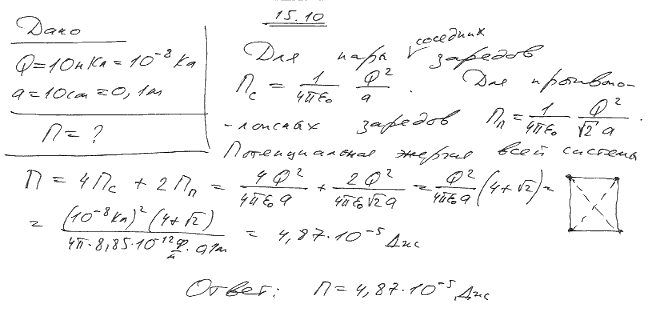 15.10
Дано
Q=10нКл=10⁻⁸Кл
a=10см=0,1м
П=?
Для пары соседних зарядов
П_с = 1/(4πε₀) Q²/a . Для противопо-
-ложных зарядов П_п = 1/(4πε₀) Q²/(√2 a) .
Потенциальная энергия всей системы
П = 4П_с + 2П_п = 4Q²/(4πε₀a) + 2Q²/(4πε₀√2a) = Q²/(4πε₀a) (4+√2) =
= (10⁻⁸Кл)²(4+√2)/(4π·8,85·10⁻¹² Ф/м·0,1м) = 4,87·10⁻⁵ Дж
Ответ: П=4,87·10⁻⁵ Дж